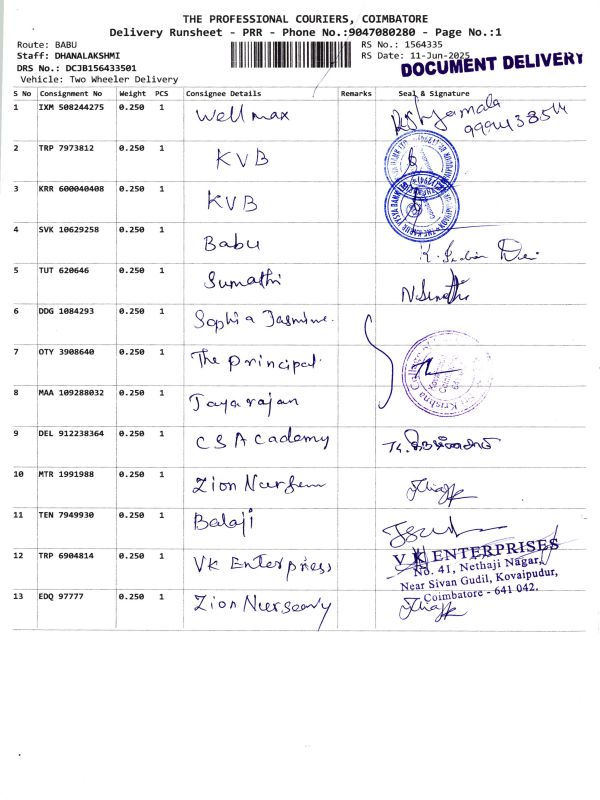 THE PROFESSIONAL COURIERS, COIMBATORE
Delivery Runsheet - PRR - Phone No.:9047080280 - Page No.:1
Route: BABU RS No.: 1564335
Staff: DHANALAKSHMI RS Date: 11-Jun-2025
DOCUMENT DELIVERY
DRS No.: DCJB156433501
Vehicle: Two Wheeler Delivery
S No Consignment No Weight PCS Consignee Details Remarks Seal & Signature
1 IXM 508244275 0.250 1 Wellmax
2 TRP 7973812 0.250 1 KVB
3 KRR 600040408 0.250 1 KVB
4 SVK 10629258 0.250 1 Babu
5 TUT 620646 0.250 1 Sumathi
6 DDG 1084293 0.250 1 Sophia Jasmine.
7 OTY 3908640 0.250 1 The principal.
8 MAA 109288032 0.250 1 Jayarajan
9 DEL 912238364 0.250 1 CS Academy
10 MTR 1991988 0.250 1 Zion
11 TEN 7949930 0.250 1 Balaji
12 TRP 6904814 0.250 1 VK Enterpress
V K ENTERPRISES
No. 41, Nethaji Nagar,
Near Sivan Gudil, Kovaipudur,
Coimbatore - 641 042.
13 EDQ 97777 0.250 1 Zion